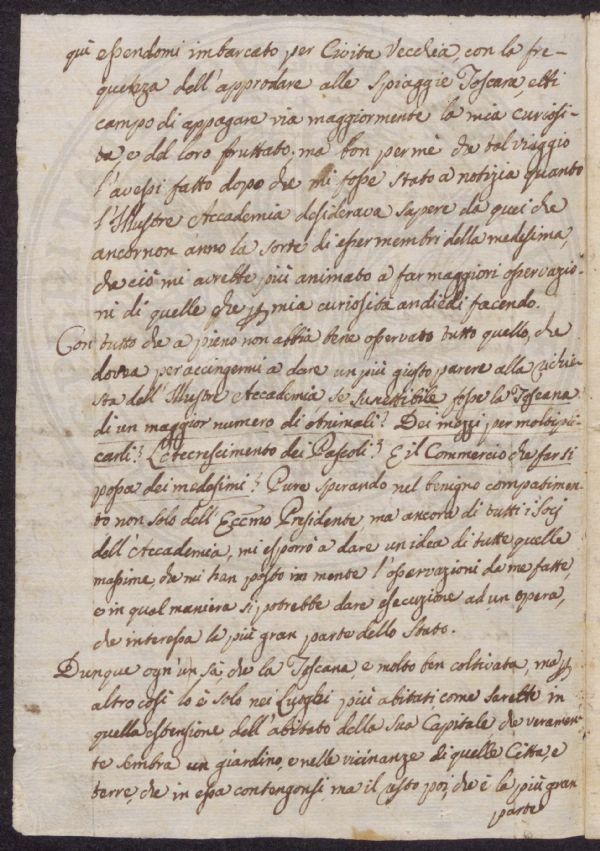 quì essendomi imbarcato per Civita Vecchia, con la fre-
quenza dell'approdare alle Spiaggie Toscane, ebbi
campo di appagare via maggiormente la mia curiosi-
tà, e del loro fruttato; ma bon per mè che tal viaggio
l'avessi fatto dopo che mi fosse stato a notizia quanto
l'Illustre Accademia desiderava sapere da quei che
ancor non anno la sorte di esser membri della medesima,
che ciò mi avrebbe più animato à far maggiori osservazio-
ni di quelle che p mia curiosità andiedi facendo.
Con tutto che a pieno non abbia bene osservato tutto quello, che
dovea per accingermi a dare un più giusto parere alla richie-
sta dell'Illustre Accademia se suscettibile fosse la Toscana
di un maggior numero di Animali? Dei mezzi per moltipli-
carli? L'accrescimento dei Pascoli? E il Commercio che far si
possa dei medesimi? Pure sperando nel benigno compatimen-
to non solo dell'Eccmo Presidente, ma ancora di tutti i Socj
dell'Accademia, mi esporrò a dare un idea di tutte quelle
massime, che mi han posto in mente l'osservazioni da me fatte,
e in qual maniera si potrebbe dare esecuzione ad un opera,
che interessa la più gran parte dello Stato.
Dunque ogn'un sà, che la Toscana, e molto ben coltivata, ma p
altro così lo è solo nei Luoghi più abitati, come sarebbe in
quella estensione dell'abitato della Sua Capitale che veramen-
te sembra un giardino, e nelle vicinanze di quelle Città, e
terre, che in essa contengonsi, ma il resto poi, che è la più gran
parte